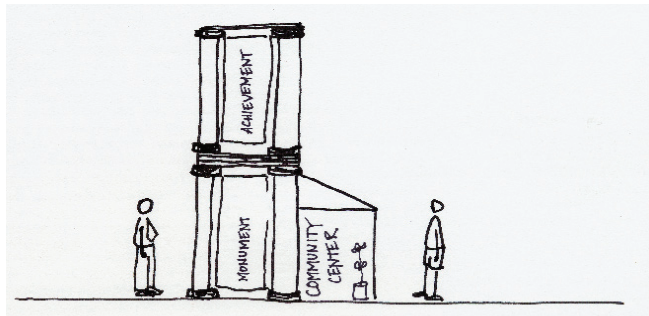 ACHIEVEMENT
MONUMENT
COMMUNITY
CENTER